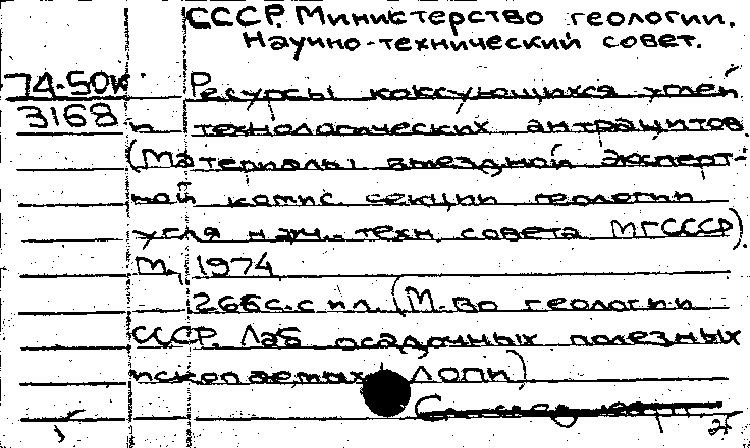 СССР. Министерство геологии.
Научно-технический совет.
74-50к Ресурсы коксующихся углей
3168 и технологических антрацитов.
(Материалы выездной эксперт-
ной комис. секции геологии
угля науч.-техн. совета МГСССР).
М., 1974
266с. с ил. (М-во геологии
СССР. Лаб осадочных полезных
ископаемых ЛОПИ)